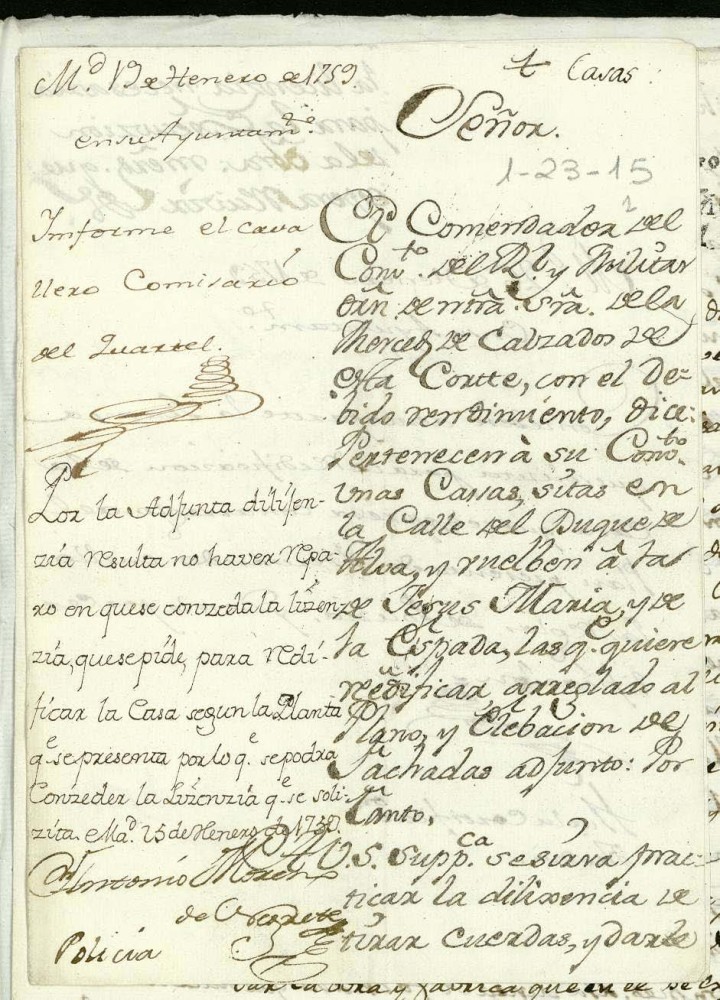 M.d 13 de Henero de 1759
en su Ayuntam.to
Informe el cava
llero Comisario
del Quartel.
Por la Adjunta dilijen-
zia resulta no haver repa-
ro en que se conzeda la lizen-
zia, que se pide, para redi-
ficar la Casa segun la Planta
q.e se presenta por lo q.e se podra
Conzeder la Lizenzia q.e se soli-
zita. Mad. 15 de Henero de 1759.
Antonio Moreno
de Negrete
Policia
Casas
Señor.
1-23-15
1
El Comendador del
Conv.to del R.l y Militar
orn de nrâ. srâ. de la
Merced de Calzados de
esta Cortte, con el De-
bido rendimiento, dice:
Pertenecen à su Conv.to
unas Cassas, sitas en
la Calle del Duque de
Alva, y vuelben â la
de Jesus Maria, y de
la Espada, las q.e quiere
reedificar arreglado al
Plano, y Elebacion de
fachadas adjunto: Por
tanto,
A V.S. supp.ca se sirva prac-
ticar la dilixencia de
tirar cuerdas, y darle